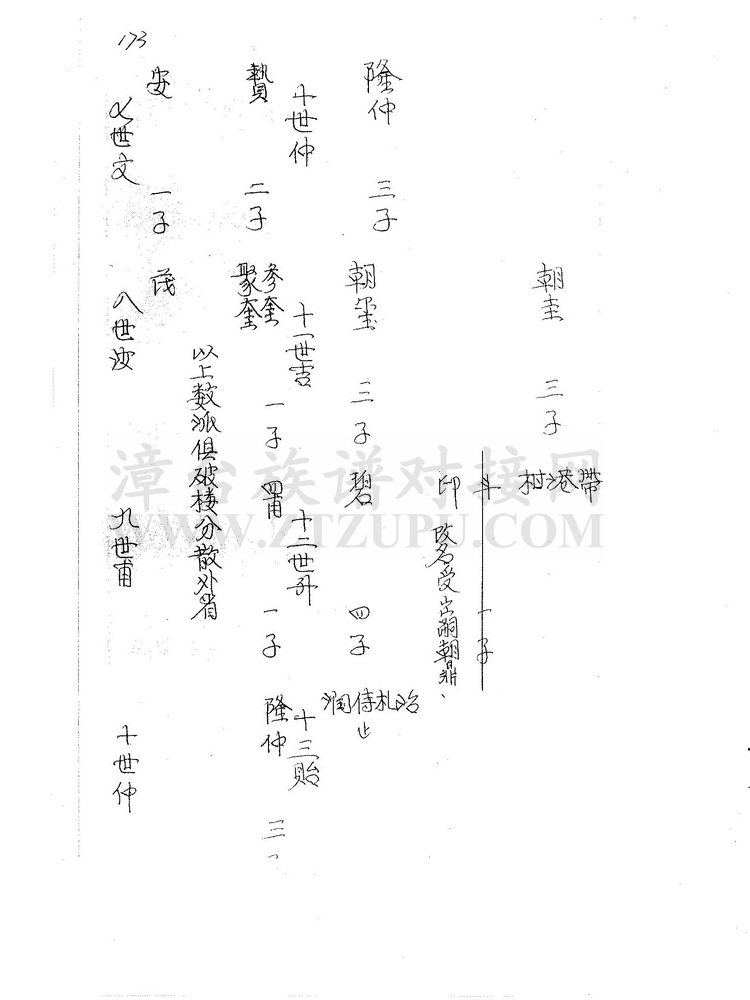 173
帶
港
树
朝圭 三子
斗 一子
印 改名受出嗣朝鼎、
隆仲 三子 朝璽 三子 碧 四子
治
札
侍
止
潤
十世仲 十一世吉 十二世升 十三貽
參奎 一子 四甫 一子 隆仲 三
贄 二子 聚奎
以上数派俱破楼分散外省
安 一子 茂
七世文 八世汝 九世甫 十世仲
漳台族谱对接网
WWW.ZTZUPU.COM